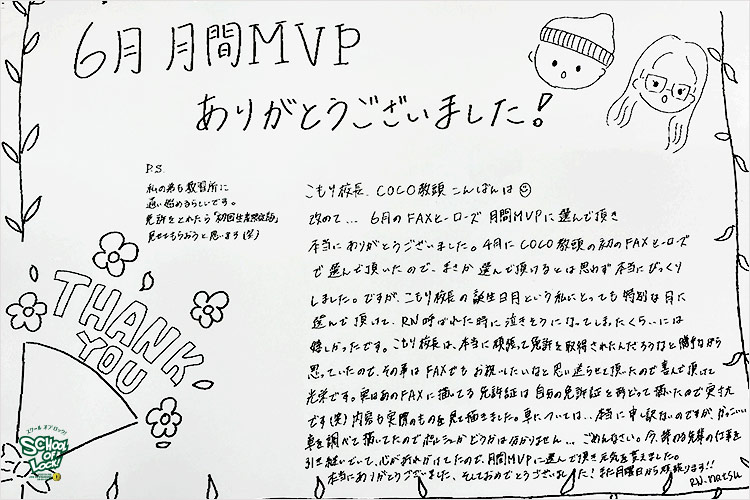 6月 月間MVP
ありがとうございました!
P.S.
私の弟も教習所に
通い始めるらしいです。
免許をとれたら「初回生者限定語」
見せてもらおうと思います(笑)
THANK
YOU
こもり校長、COCO教頭 こんばんは
改めて... 6月のFAXヒーローズ 月間MVPに選んで頂き
本当にありがとうございました。4月にCOCO教頭の初のFAXヒーローズ
で選んで頂いたので、まさか 選んで頂けるとは思わず本当にびっくり
しました。ですが、こもり校長の誕生日月という私にとっても特別な月に
選んで頂けて、RN呼ばれた時に泣きそうになってしまったくらいには
嬉しかったです。こもり校長は、本当に頑張って免許を取得されたんだろうなと勝手ながら
思っていたので、その事はFAXでもお祝いしたいなと思い送らせて頂いたので喜んで頂けて
光栄です。実はあのFAXに描いてる免許証は自分の免許証を形どって描いたので実寸大
です(笑)内容も実際のものを見て描きました。車については...本当に申し訳ないのですが、かっこいい
車を調べて描いてたのでポルシェかどうかは分かりません... ごめんなさい。今、辞める先輩の仕事を
引き継いでいて、心があれかけてたので、月間MVPに選んで頂き元気を貰えました。
本当にありがとうございました、そしておめでとうございました!また月曜日から頑張ります!!
RN.natsu
スクール オブ ロック!
SCHOOL
OF
LOCK!